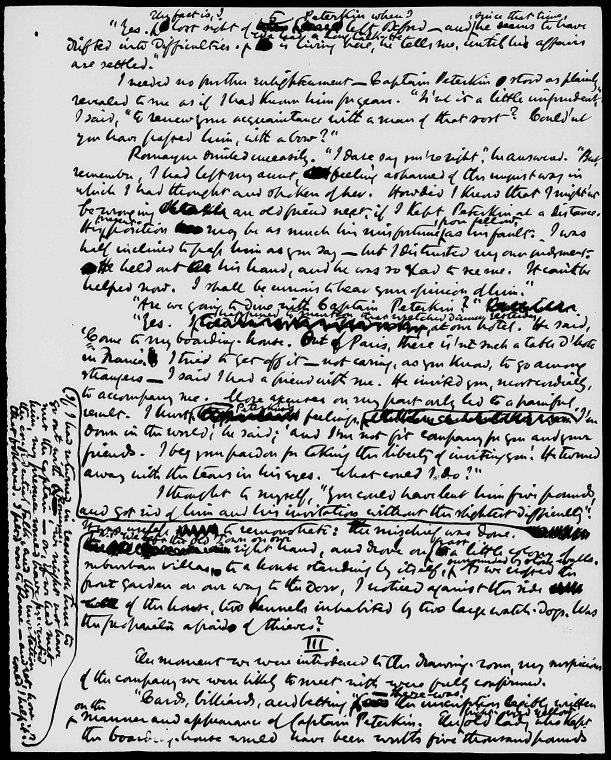 "Yes. The fact is, I lost sight of Peterkin when I left Oxford – and since that time, he seems to have
drifted into difficulties. He is living here, he tells me, until his affairs
are settled."
I needed no further enlightenment – Captain Peterkin stood as plainly
revealed to me as if I had known him for years. "Isn't it a little imprudent"
I said, "to renew your acquaintance with a man of that sort? Couldn't
you have passed him, with a bow?"
Romayne smiled uneasily. "I daresay you're right", he answered. "But
remember, I had left my aunt, feeling ashamed of the unjust way in
which I had thought and spoken of her. How did I know that I mightn't
be wronging an old friend next, if I kept Peterkin at a distance.
His present position may be as much his misfortune, poor fellow, as his fault. I was
half inclined to pass him as you say – but I distrusted my own judgment.
He held out his hand, and he was so glad to see me. It can't be
helped now. I shall be curious to hear your opinion of him."
"Are we going to dine with Captain Peterkin?"
"Yes. I happened to mention that wretched dinner yesterday, at our hotel. He said,
'Come to my boarding-house. Out of Paris, there isn't such a table d'hôte
in France.' I tried to get off it – not caring, as you know, to go among
strangers – I said I had a friend with me. He invited you, most cordially,
to accompany me. More excuses on my part only led to a painful
result. I hurt Peterkin's feelings. 'I'm
down in the world,' he said; 'and I'm not fit company for you and your
friends. I beg your pardon for taking the liberty of inviting you.' He turned
away with the tears in his eyes. What could I do?"
I thought to myself, "You could have lent him five pounds,
and got rid of him and his invitation without the slightest difficulty".
(If I had returned in reasonable time to
go out with Romayne, we might not have
met the captain – or, if we had met
him, my presence would have prevented
the confidential talk and the invitation
that followed. I felt I was to blame – and yet, how could I help it?
It was useless to remonstrate: the mischief was done.
We left the old town on our
right hand, and drove on, past a little colony of
suburban villas, to a house standing by itself, surrounded by stone walls. As we crossed the
front garden on our way to the door, I noticed against the side
of the house, two kennels inhabited by two large watch-dogs. Was
the proprietor afraid of thieves?
III.
The moment we were introduced to the drawing-room, my suspicions
of the company we were likely to meet with were fully confirmed.
"Cards, billiards, and betting" – there was the inscription legibly written
on the manner and appearance of Captain Peterkin. The old lady who kept
the boarding-house would have been worth five thousand pounds